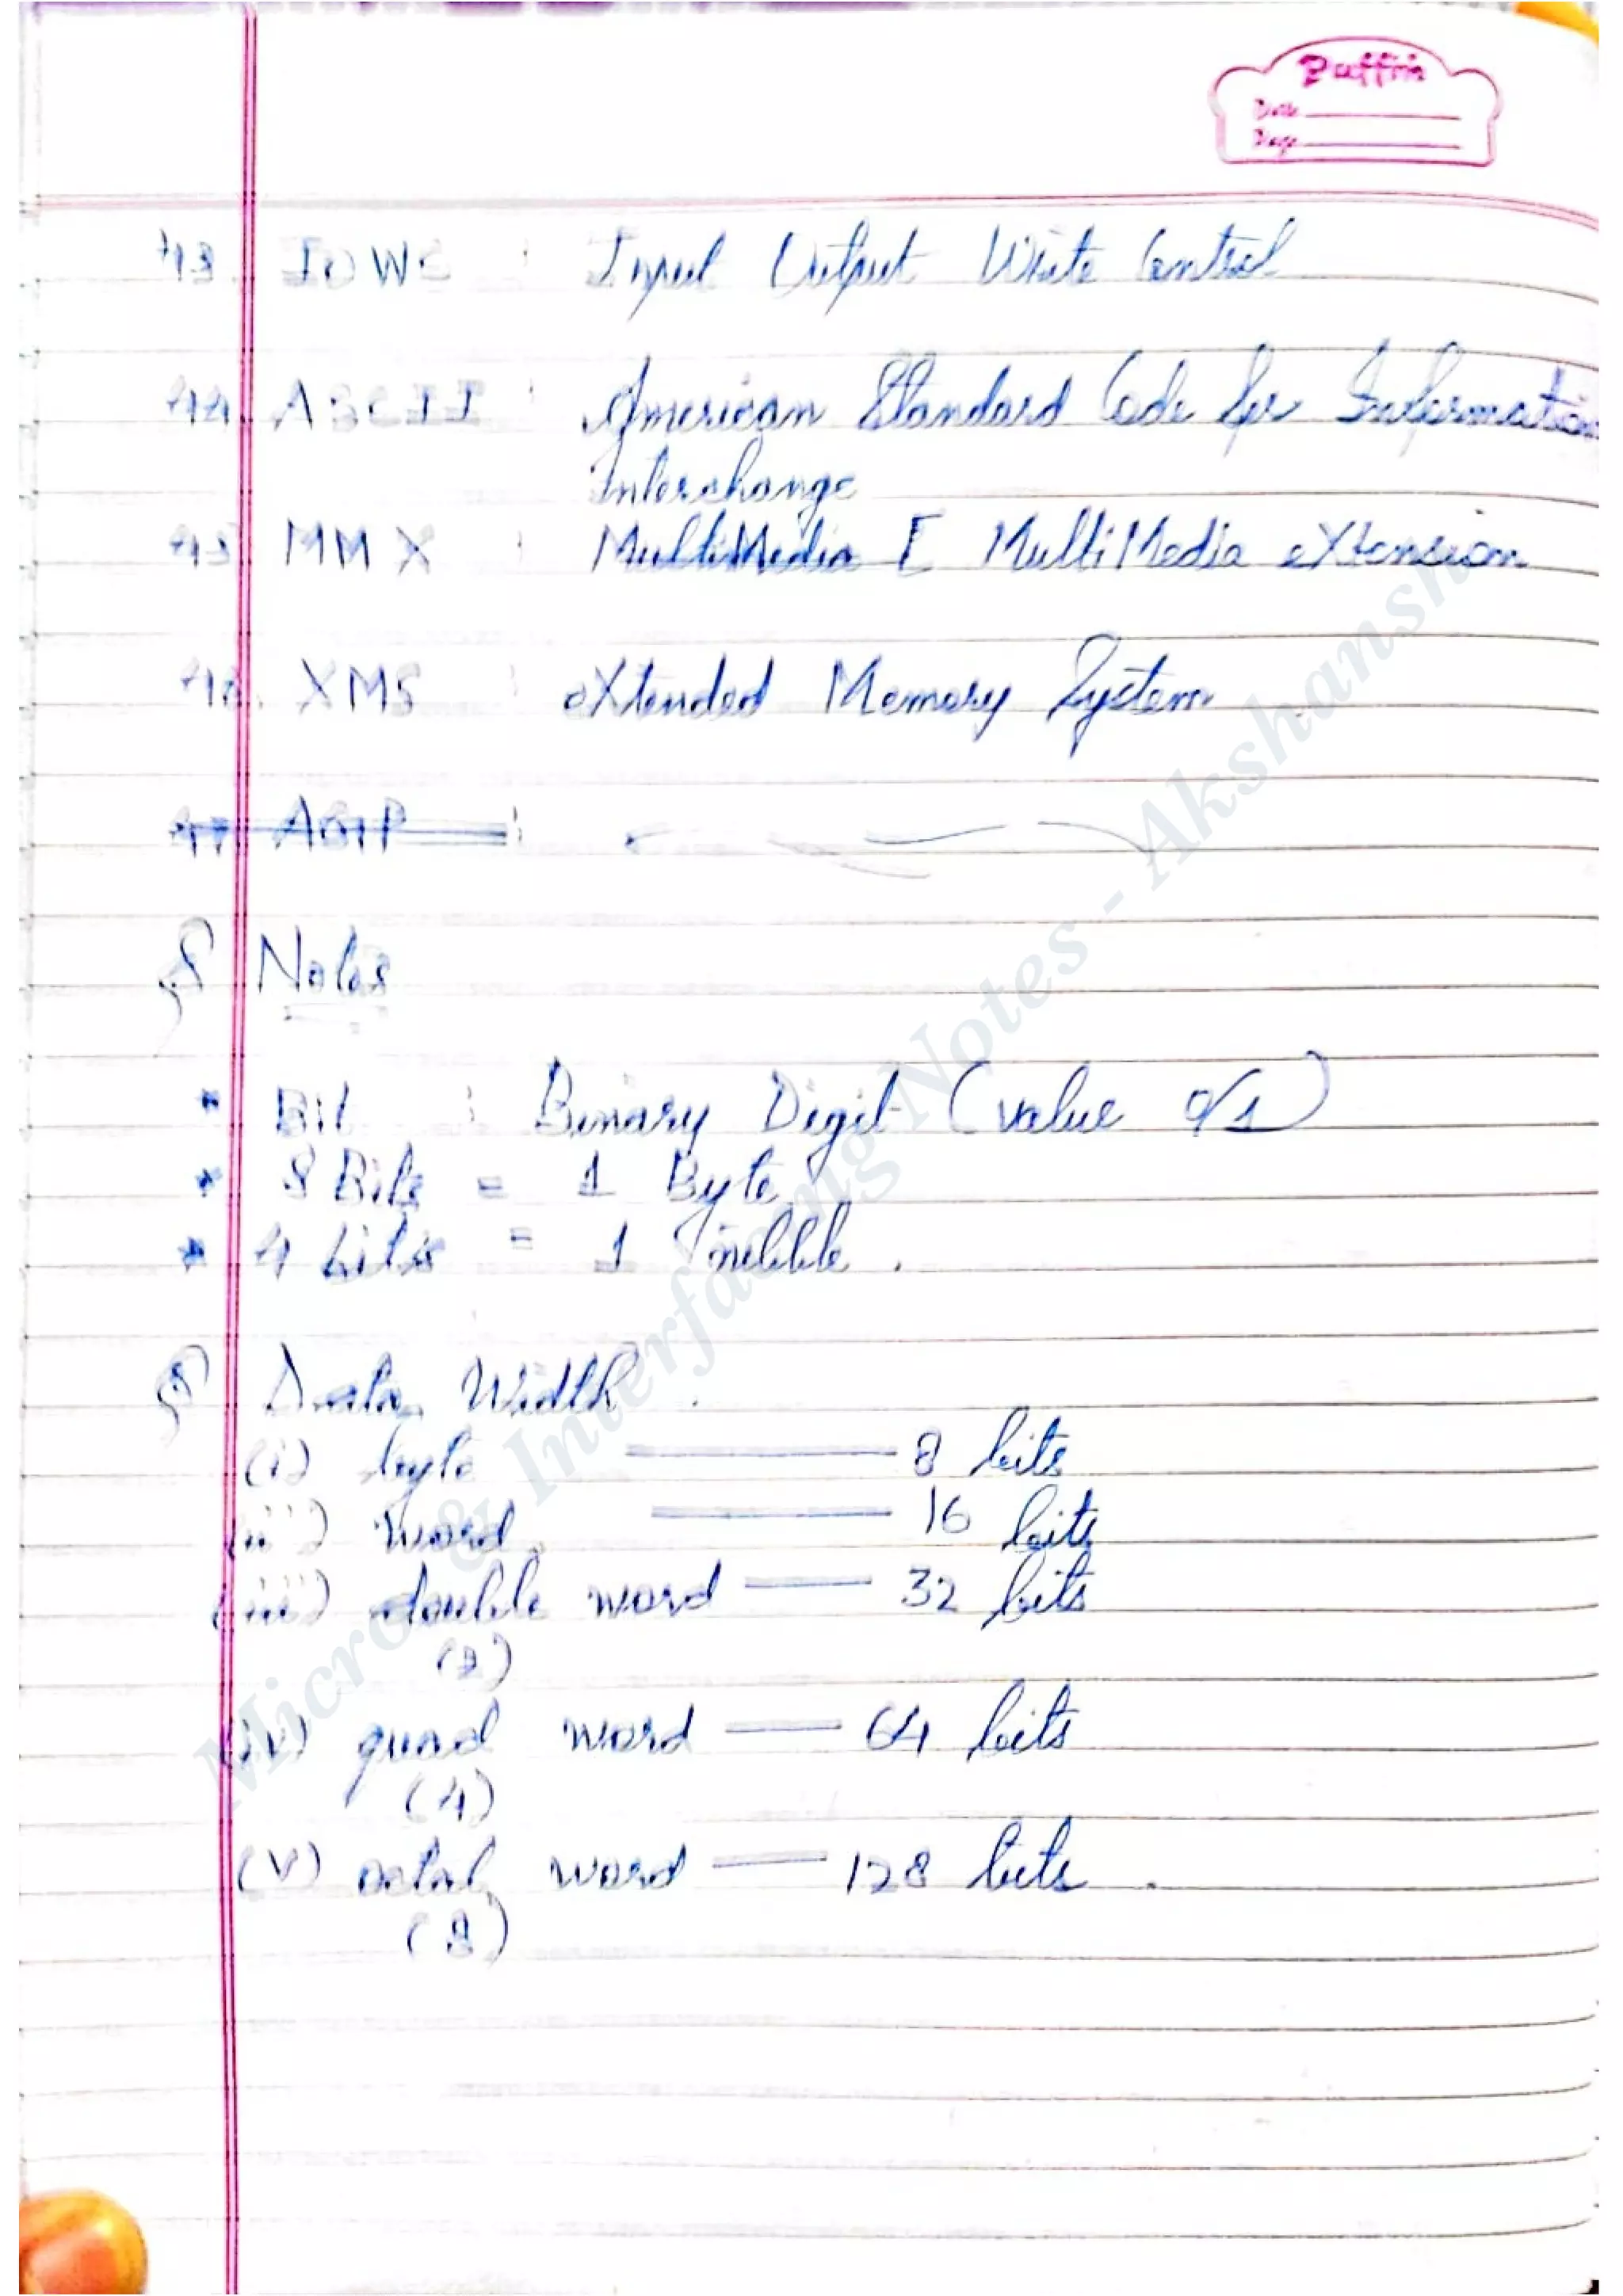 Puffin
Date
Page
43. IOWC : Input Output Write Control
44. ASCII : American Standard Code for Information
Interchange
45 MMX : MultiMedia E MultiMedia eXtension
46. XMS : eXtended Memory System
47
Notes
* Bit : Binary Digit (value 0/1)
* 8 Bits = 1 Byte
* 4 bits = 1 nibble .
Data Width .
(i) byte 8 bits
(ii) word 16 bits
(iii) double word 32 bits
(2)
(iv) quad word 64 bits
(4)
(v) octal word 128 bits .
(8)
Micro & Interfacing Notes - Akshansh